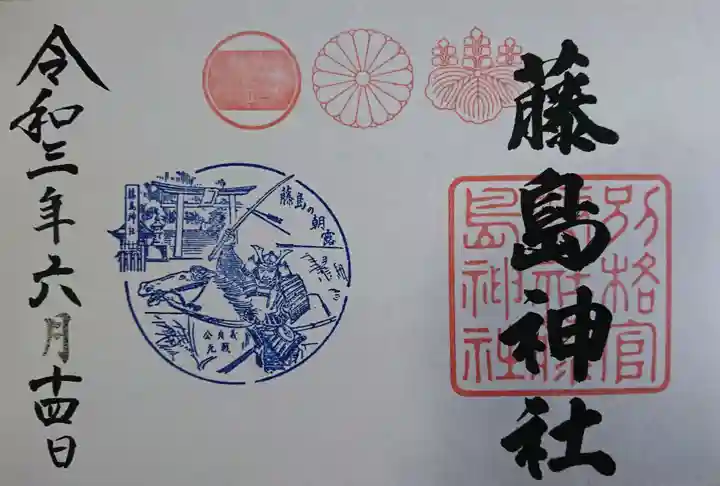 藤島神社
別格官
幣社藤
島神社
藤島神社
藤島の朝露
義貞公戦死
令和三年六月十四日